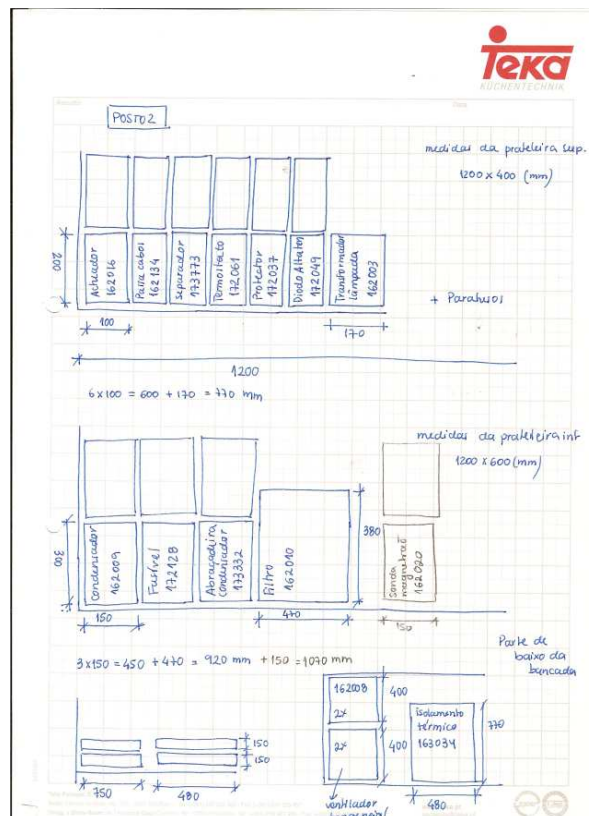 Teka
KÜCHENTECHNIK
POSTO 2
medidas da prateleira sup.
1200 x 400 (mm)
200
Acheador
162016
Passa cabos
162134
Separador
173773
Termostato
172061
Protector
172037
Diodo Altaten
172049
Transformador
lâmpada
162003
+ Parafusos
100
170
1200
6 x 100 = 600 + 170 = 770 mm
medidas da prateleira inf
1200 x 600 (mm)
300
Condensador
162009
Fusível
172128
Abraçadeira
condensador
173332
Filtro
162010
380
Sonda
magnetrão
162020
150
470
150
3 x 150 = 450 + 470 = 920 mm + 150 = 1070 mm
Parte de
baixo da
bancada
162008
2x
400
2x
400
isolamento
térmico
163034
770
150
150
750
480
480
ventilador